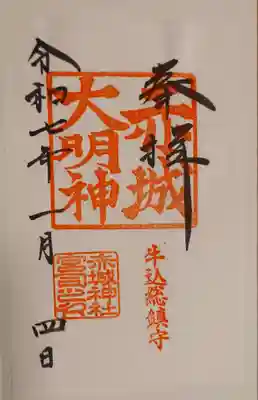 奉拝
赤城
大明神
牛込総鎮守
赤城神社
宮司之印
令和七年一月四日